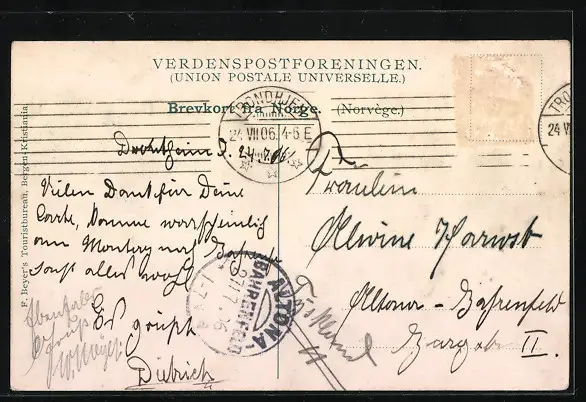 VERDENSPOSTFORENINGEN.
(UNION POSTALE UNIVERSELLE.)
Brevkort fra Norge. (Norvège.)
TRONDHJEM
24 VII 06. 4-5 E
TRO
24 VI
F. Beyer's Touristbureau, Bergen-Kristiania
Drontheim d. 24.7.06
Vielen Dank für Deine
Carte, komme warscheinlich
am Montag nach Bahrenf
sonst alles wohl
Es grüßt
Dietrich
Ebenfalls
Gruß
ALTONA
BAHRENFELD
27/7.06
1-7
Fräulein
Alwine Harwost
Altona-Bahrenfeld
II.